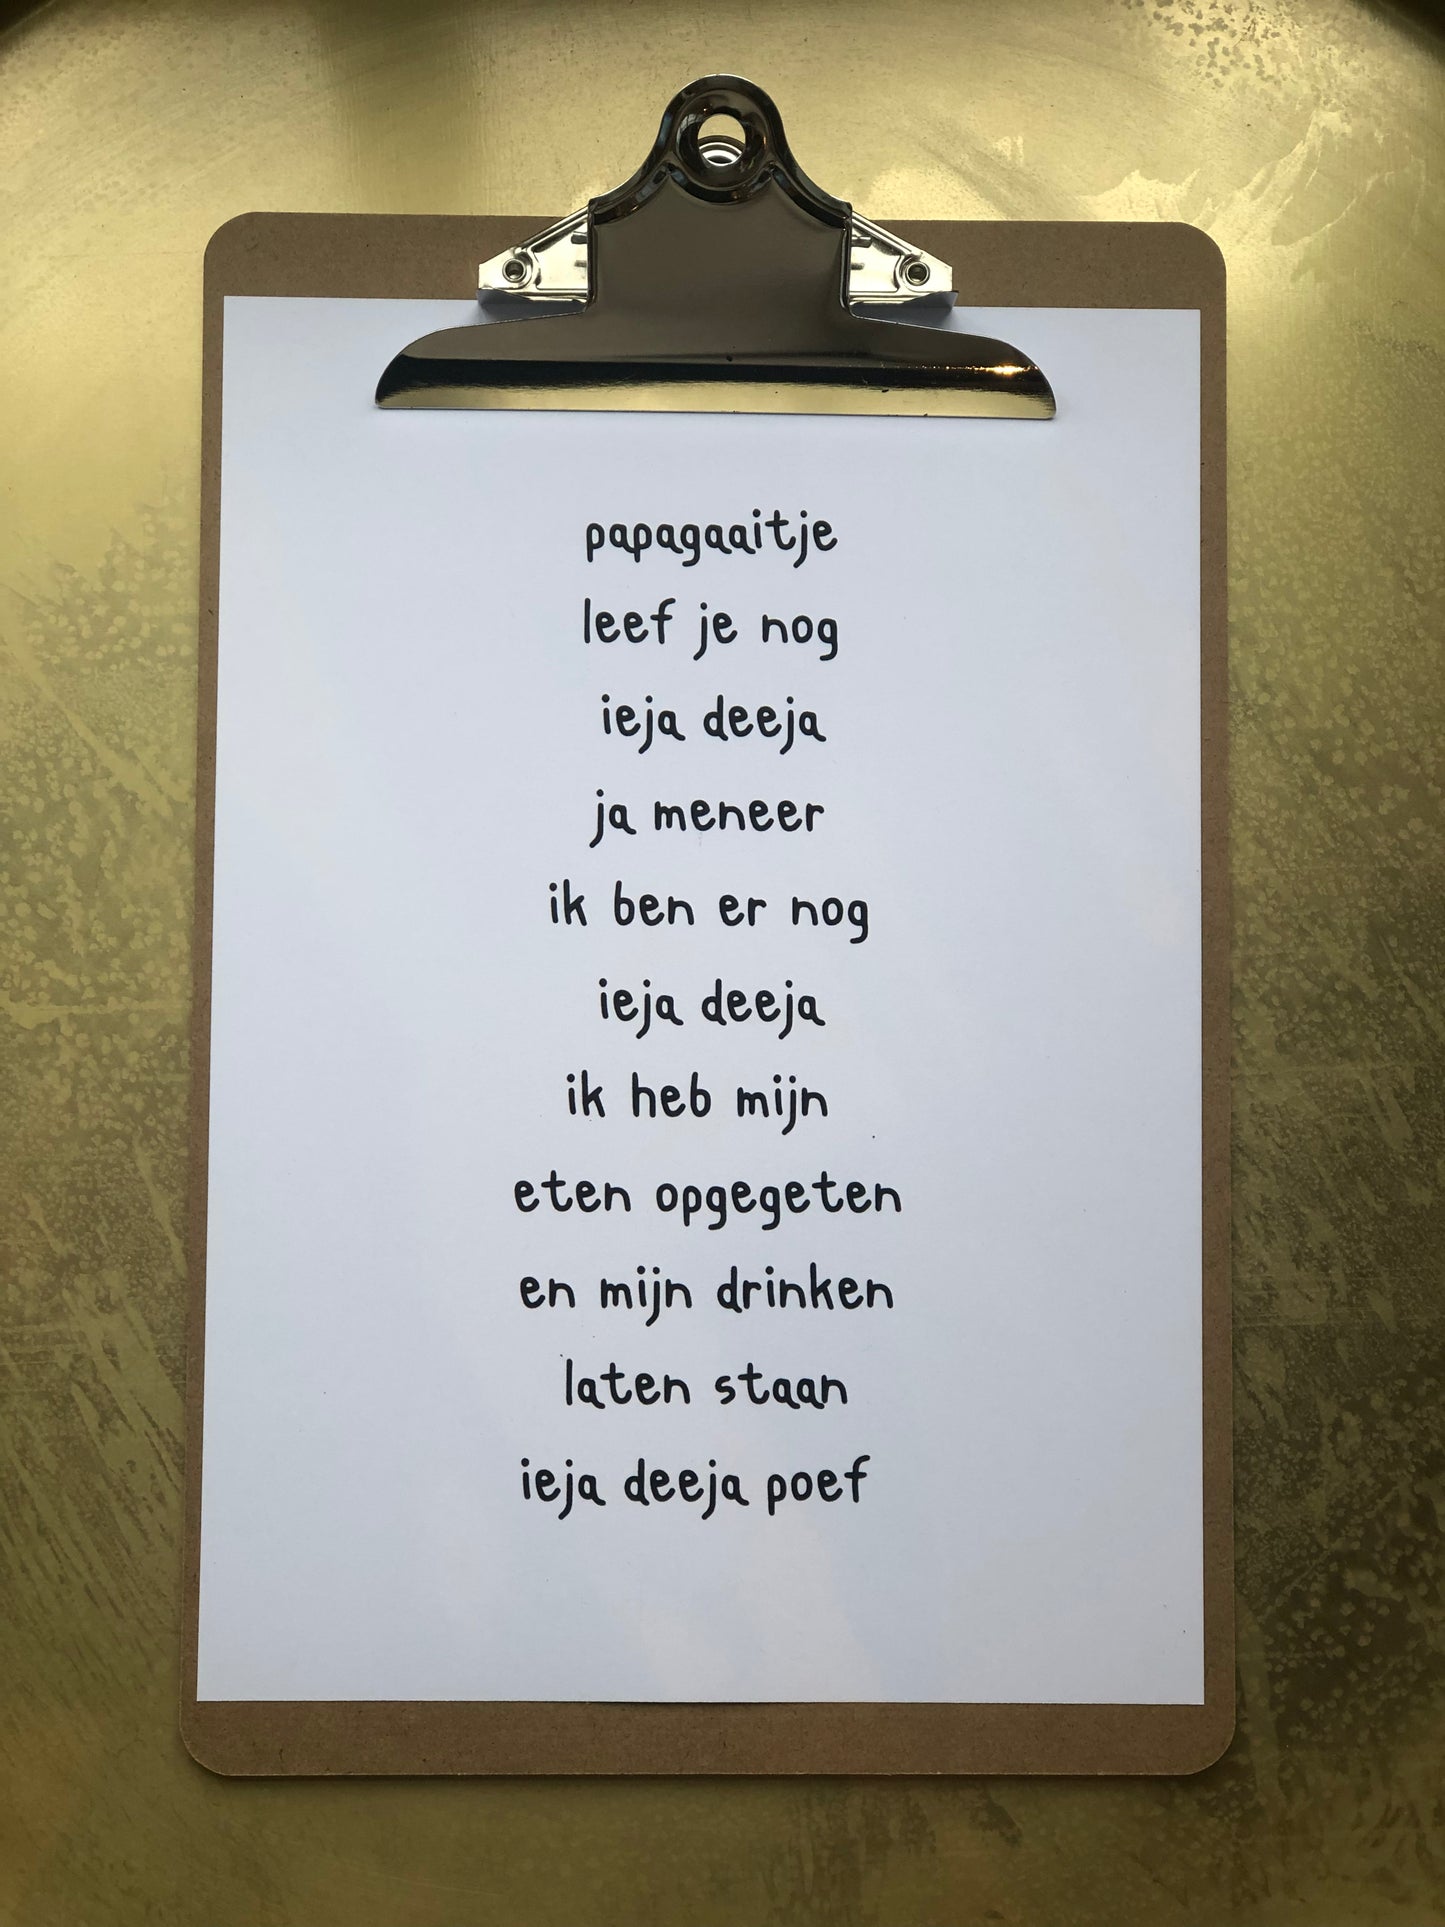 papagaaitje
leef je nog
ieja deeja
ja meneer
ik ben er nog
ieja deeja
ik heb mijn
eten opgegeten
en mijn drinken
laten staan
ieja deeja poef